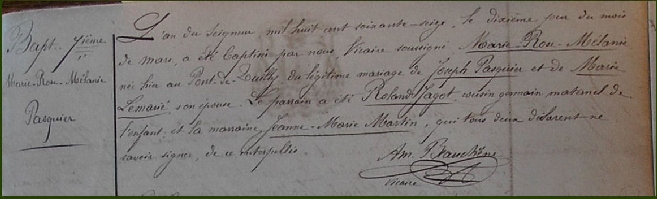 Bapt. 7ième
Marie-Rose-Mélanie
Pasquier
L'an du Seigneur, mil huit cent soixante-seize, le dixième jour du mois
de mars, a été baptisée par nous Vicaire soussigné Marie-Rose-Mélanie
née hier au Pont-de- du légitime mariage de Joseph Pasquier et de Marie
son épouse. Le parrain a été Roland Jagot cousin germain maternel de
l'enfant et la marraine Jeanne-Marie Martin, qui tous deux déclarent ne
savoir signer de ce interpellés.
Am.
Vicaire